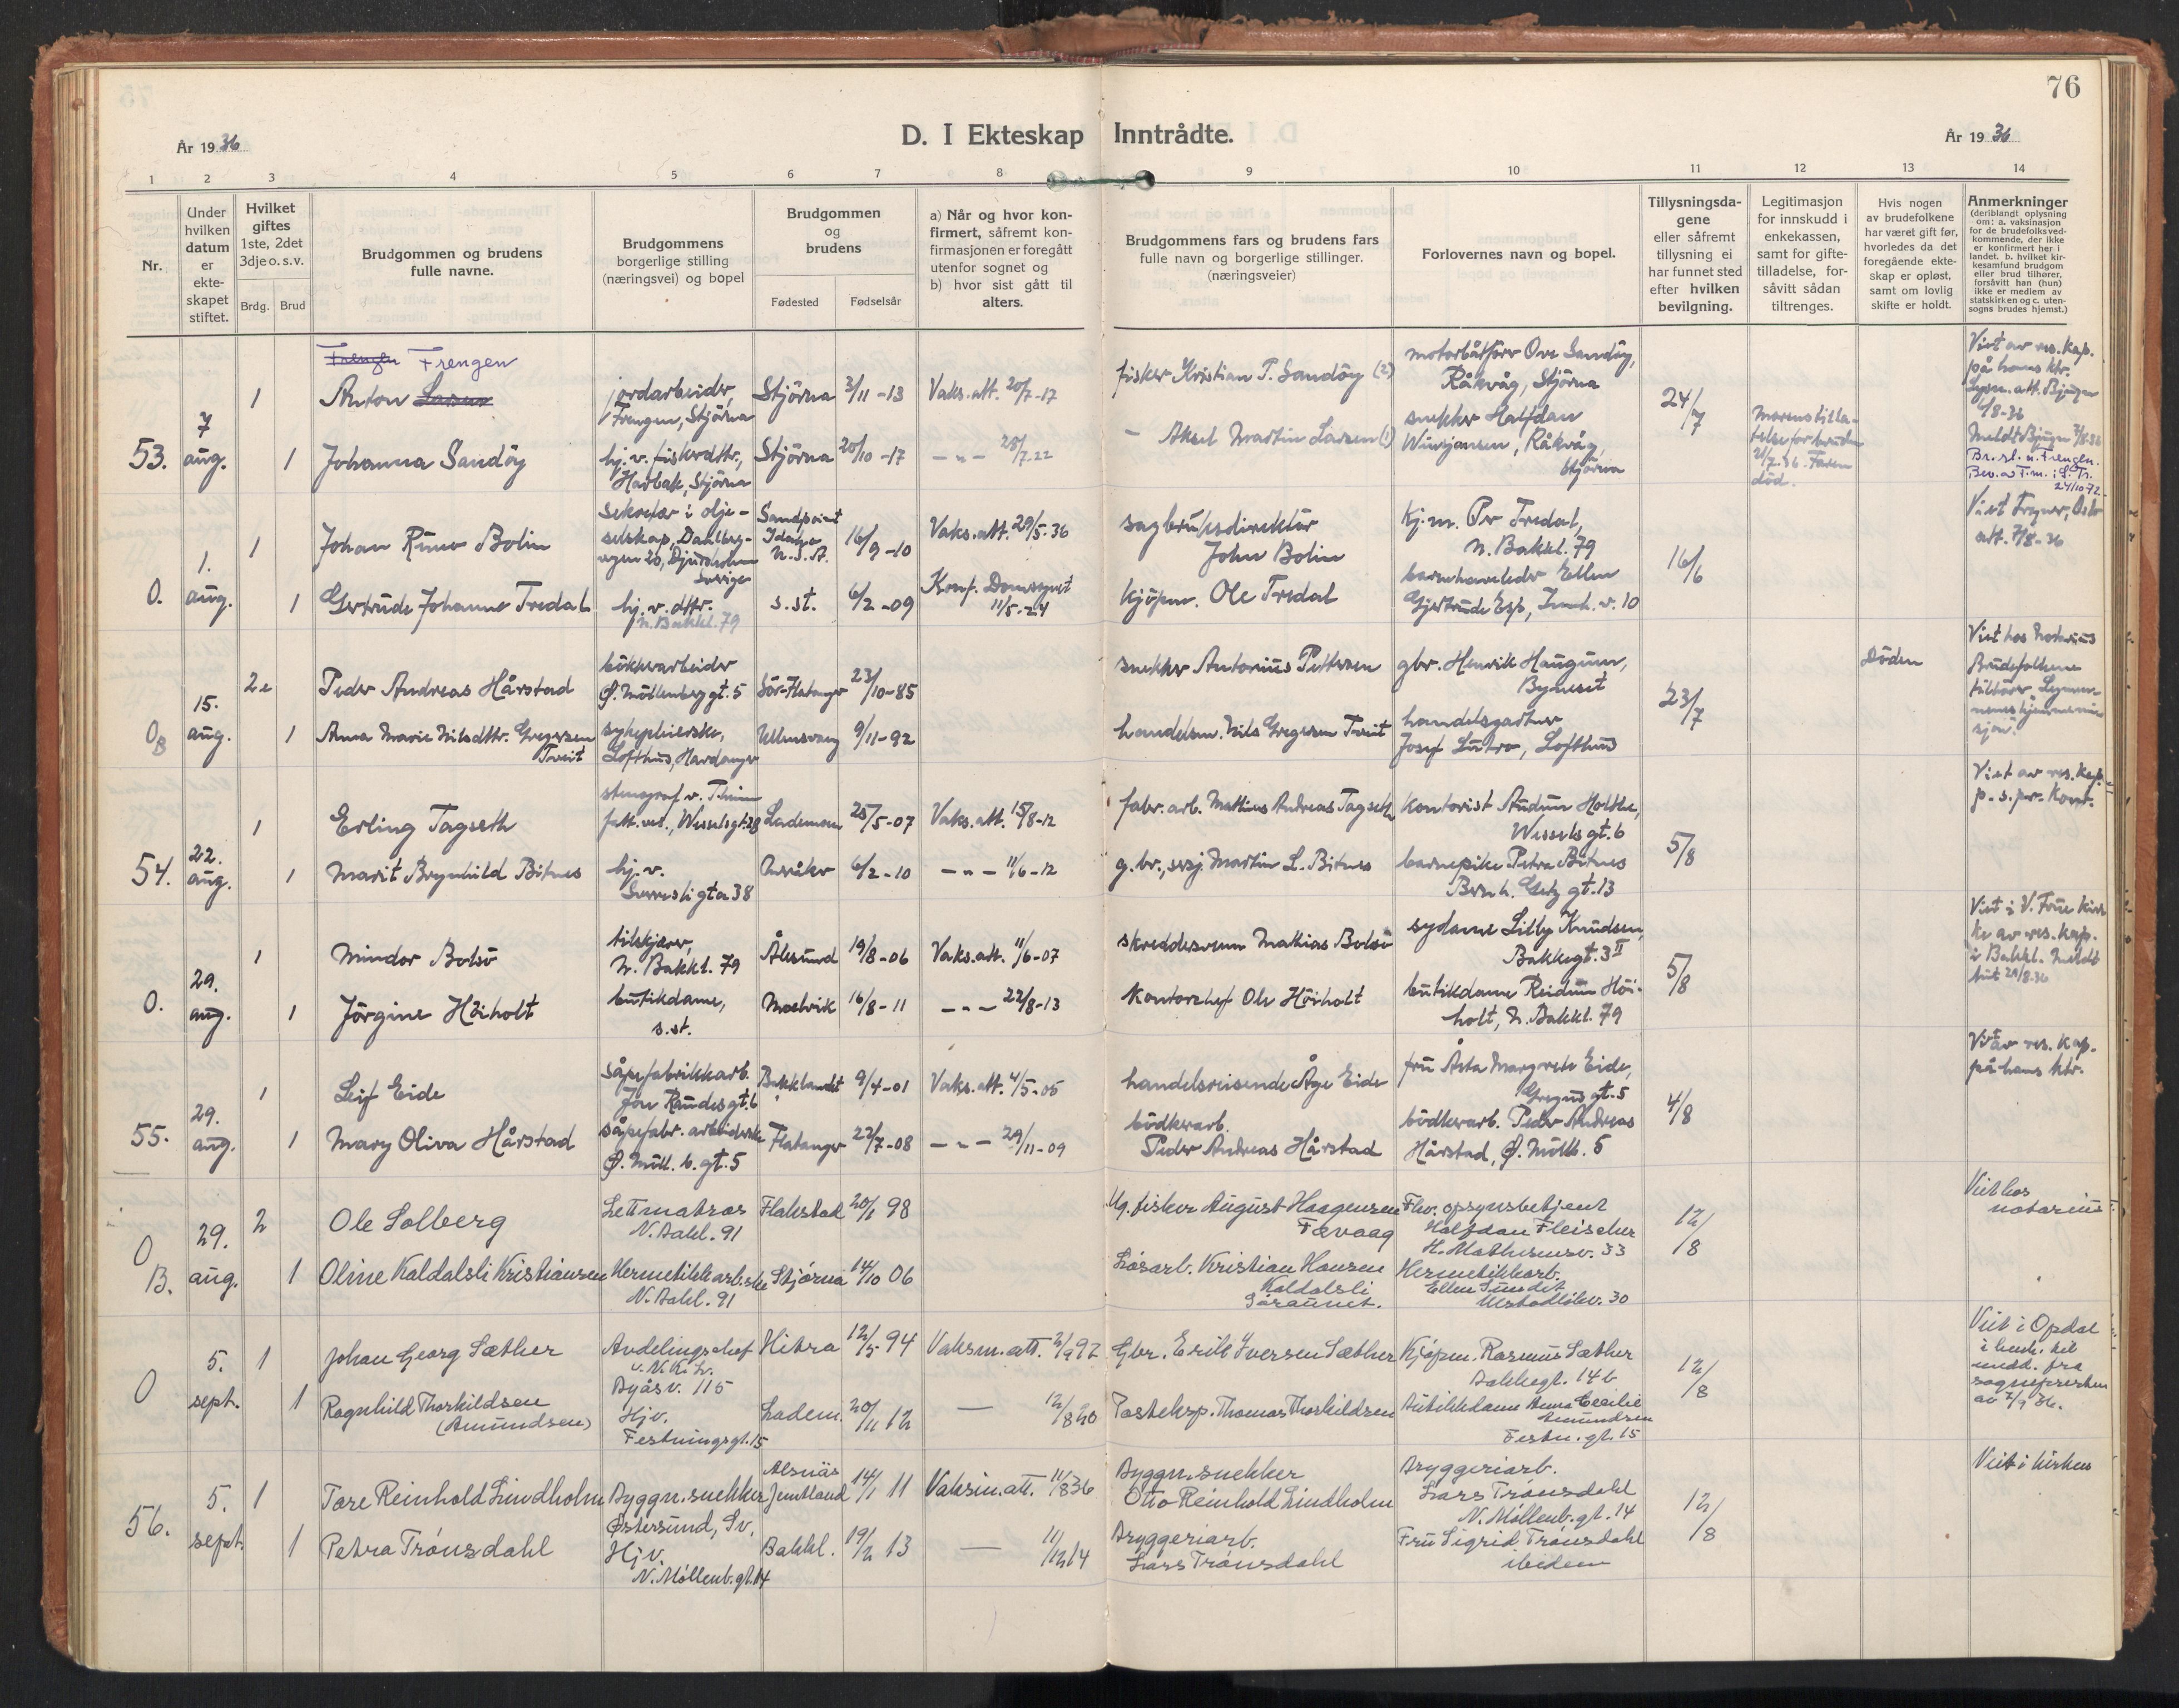 76
År 1936
D. I Ekteskap Inntrådte.
År 1936
1 2 3 4 5 6 7 8 9 10 11 12 13 14
Nr.
Under hvilken datum er ekteskapet stiftet.
Hvilket giftes 1ste, 2det 3dje o. s. v.
Brdg. Brud
Brudgommen og brudens fulle navne.
Brudgommens borgerlige stilling (næringsvei) og bopel
Brudgommen og brudens
Fødested Fødselsår
a) Når og hvor konfirmert, såfremt konfirmasjonen er foregått utenfor sognet og b) hvor sist gått til alters.
Brudgommens fars og brudens fars fulle navn og borgerlige stillinger. (næringsveier)
Forlovernes navn og bopel.
Tillysningsdagene eller såfremt tillysning ei har funnet sted efter hvilken bevilgning.
Legitimasjon for innskudd i enkekassen, samt for giftetilladelse, forsåvitt sådan tiltrenges.
Hvis nogen av brudefolkene har været gift før, hvorledes da det foregående ekteskap er opløst, samt om lovlig skifte er holdt.
Anmerkninger (deriblandt oplysning om: a. vaksinasjon for de brudefolks vedkommende, der ikke er konfirmert her i landet. b. hvilket kirkesamfund brudgom eller brud tilhører, forsåvitt han (hun) ikke er medlem av statskirken og c. utensogns brudes hjemst.)
53. 7 aug.
1 Frengen Frengen
Anton jordarbeider, Frengen, Stjörna Stjörna 3/11-13 Vaks.att. 20/7-17
fisker Kristian P. Sandöy (2)
motorbåtförer Ove Sandöy, Råkvåg, Stjörna
24/7
Viet av res. kap. på hans ktr. Lysn. att. Bjugn 6/8-36
1 Johanna Sandöy hj. v. fiskerdttr., Harbak, Stjörna Stjörna 20/10-17 - " - 28/7-22
- Aksel Martin Larsen (1)
snekker Halfdan Råkvåg, Stjörna
Br. sl. n. Frengen.
24/10 72
O. 1. aug.
1 Johan Rune Bolin sekretær i oljeselskap, Djursholm Sverige Sandpoint Idaho U.S.A. 16/9-10 Vaks.att. 29/5-36
sagbruksdirektör John Bolin
Kj.m. Per Tredal, N. Bakkl. 79
16/6
Viet Frogner, Oslo att. 7/8-36
1 Gertrude Johanne Tredal hj. v. dttr. N. Bakkl. 79 s. st. 6/2-09 Konf. Domsognet 11/5-24
kjöpm. Ole Tredal
barnehaveleder Ellen Gjertrude Esp,
OB 15. aug.
2e Peder Andreas Hårstad bökkerarbeider Ø. Möllenberggt. 5 Sör-Flatanger 23/10-85
snekker Antonius Pettersen
gbr. Henrik Haugum, Byneset
23/7
Döden
Viet hos Notarius Brudefolkene tilhörer
1 Anna Marie Nilsdttr. Gregersen Tveit sykepleierske, Lofthus, Hardanger Ullensvang 9/11-92
handelsm. Nils Gregersen Tveit
handelsgartner Josef Lutro, Lofthus
54. 22. aug.
1 Erling Tagseth stenograf v. Tr.heim Wesselsgt. 28 Lademoen 25/5-07 Vaks.att. 15/8-12
fabr. arb. Mathias Andreas Tagseth
kontorist Audun Holthe, Wesselsgt. 6
5/8
Viet av res. kap. p. s. pr. kont.
1 Marit Brynhild Bitnes hj. v. Sverresligata 38 6/2-10 - " - 11/6-12
g.br., sersj. Martin L. Bitnes
barnepike Petra Bitnes Bernh. Getz gt. 13
O. 29. aug.
1 Mindor Bolsö tilskjærer, N. Bakkl. 79 Ålesund 19/8-06 Vaks.att. 11/6-07
skreddersvenn Mathias Bolsö
sydame Lilly Knudsen, Bakkegt. 3 II
5/8
Viet i V. Frue kirke av res. kap. i Bakkl. Meldt hit 29/8-36
1 Jörgine Höiholt butikdame, s. st. Mostvik 16/8-11 - " - 22/8-13
Kontorchef Ole Höiholt
butikdame Reidun Höiholt, N. Bakkl. 79
55. 29. aug.
1 Leif Eide såpefabrikkarb. Jon Raudesgt. 6 Bakklandet 9/4-01 Vaks.att. 4/5-05
handelsreisende Åge Eide
fru Åsta Margrete Eide, Gregusgt. 5
4/8
Viet av res. kap. på hans ktr.
1 Mary Oliva Hårstad såpefabr. arbeiderske Ø. Müll. b. gt. 5 Flatanger 22/7-08 - " - 29/11-09
bödkerarb. Peder Andreas Hårstad
bödkerarb. Peder Andreas Hårstad, Ø. Möllb. 5
O B. 29. aug.
2 Ole Solberg Lettmatros N. Bakl. 91 Flakstad 20/1 98
Ug. fisker August Haagensen Fævaag
Fhv. opsynsbetjent Halfdan Fleischer H. Mathisensv. 33
12/8
Viet hos notarius
1 Oline Kaldalsli Kristiansen Hermetikkarb.ske N. Bakl. 91 Stjórna 14/10 06
Løsarb. Kristian Hansen Kaldalsli Søraunet.
Hermetikkarb. Ellen Sundet Ulstadløkv. 30
O 5. sept.
1 Johan Georg Sæther Avdelingschef v. N.K.L. Byåsv. 115 Hitra 12/5 94 Vaksin.att. 2/9 97
Gbr. Erik Iversen Sæther
Kjøpm. Rasmus Sæther Bakkegt. 14b
12/8
Viet i Opdal i henh. til medd. fra sognepresten av 7/9 36.
1 Ragnhild Thorkildsen (Amundsen) Hjv. Festningsgt. 15 Ladem. 20/11 12 — 12/8 20
Posteksp. Thomas Thorkildsen
Butikkdame Anna Cecilie Amundsen Festn. gt. 15
56. 5. sept.
1 Tore Reinhold Lindholm Byggn. snekker Østersund, Sv. Alsnäs Jemtland 14/1 11 Vaksin.att. 11/8 36
Byggn. snekker Otto Reinhold Lindholm
Bryggeriarb. Lars Trónsdahl N. Møllenb. gt. 14
12/8
Viet i kirken
1 Petra Trónsdahl Hjv. N. Møllenb. gt. 14 Bakkl. 19/2 13 — 11/12 14
Bryggeriarb. Lars Trónsdahl
Fru Sigrid Trónsdahl ibidem